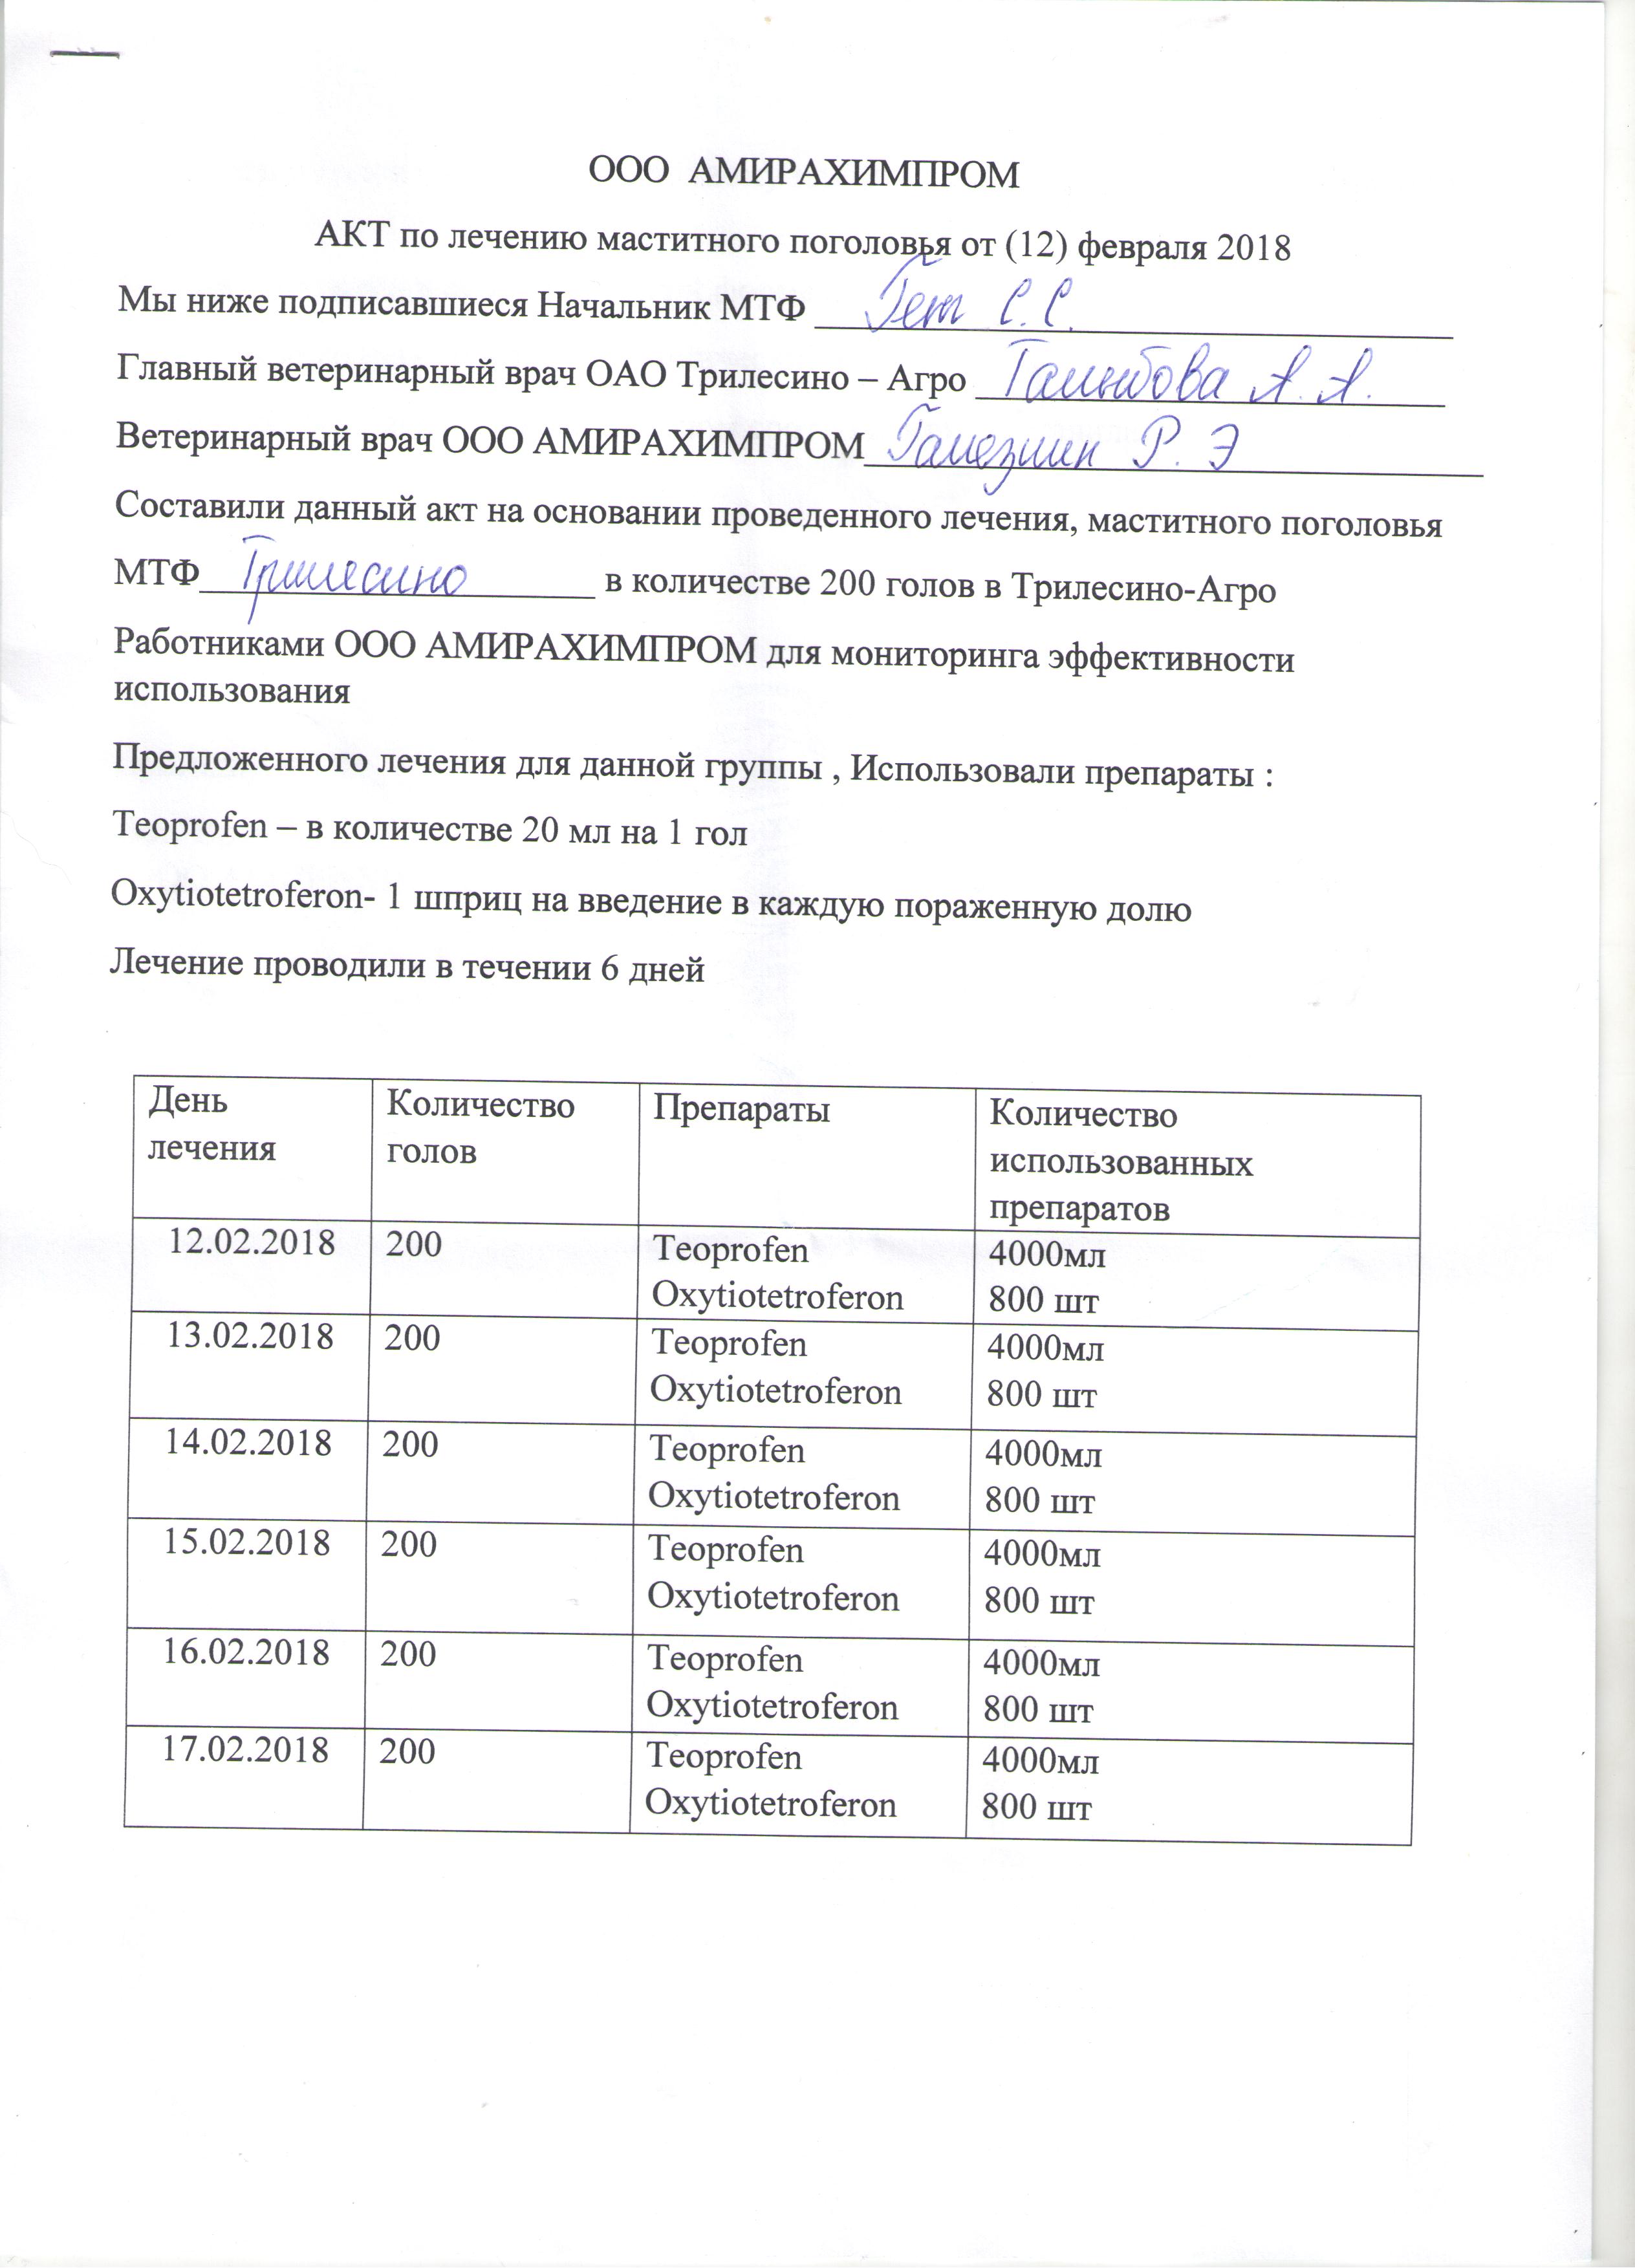 ООО АМИРАХИМПРОМ
АКТ по лечению маститного поголовья от (12) февраля 2018
Мы ниже подписавшиеся Начальник МТФ С.С.
Главный ветеринарный врач ОАО Трилесино – Агро А.А.
Ветеринарный врач ООО АМИРАХИМПРОМ Р. Э
Составили данный акт на основании проведенного лечения, маститного поголовья
МТФ Трилесино в количестве 200 голов в Трилесино-Агро
Работниками ООО АМИРАХИМПРОМ для мониторинга эффективности
использования
Предложенного лечения для данной группы , Использовали препараты :
Teoprofen – в количестве 20 мл на 1 гол
Oxytiotetroferon- 1 шприц на введение в каждую пораженную долю
Лечение проводили в течении 6 дней
День лечения Количество голов Препараты Количество использованных препаратов
12.02.2018 200 Teoprofen 4000мл
Oxytiotetroferon 800 шт
13.02.2018 200 Teoprofen 4000мл
Oxytiotetroferon 800 шт
14.02.2018 200 Teoprofen 4000мл
Oxytiotetroferon 800 шт
15.02.2018 200 Teoprofen 4000мл
Oxytiotetroferon 800 шт
16.02.2018 200 Teoprofen 4000мл
Oxytiotetroferon 800 шт
17.02.2018 200 Teoprofen 4000мл
Oxytiotetroferon 800 шт